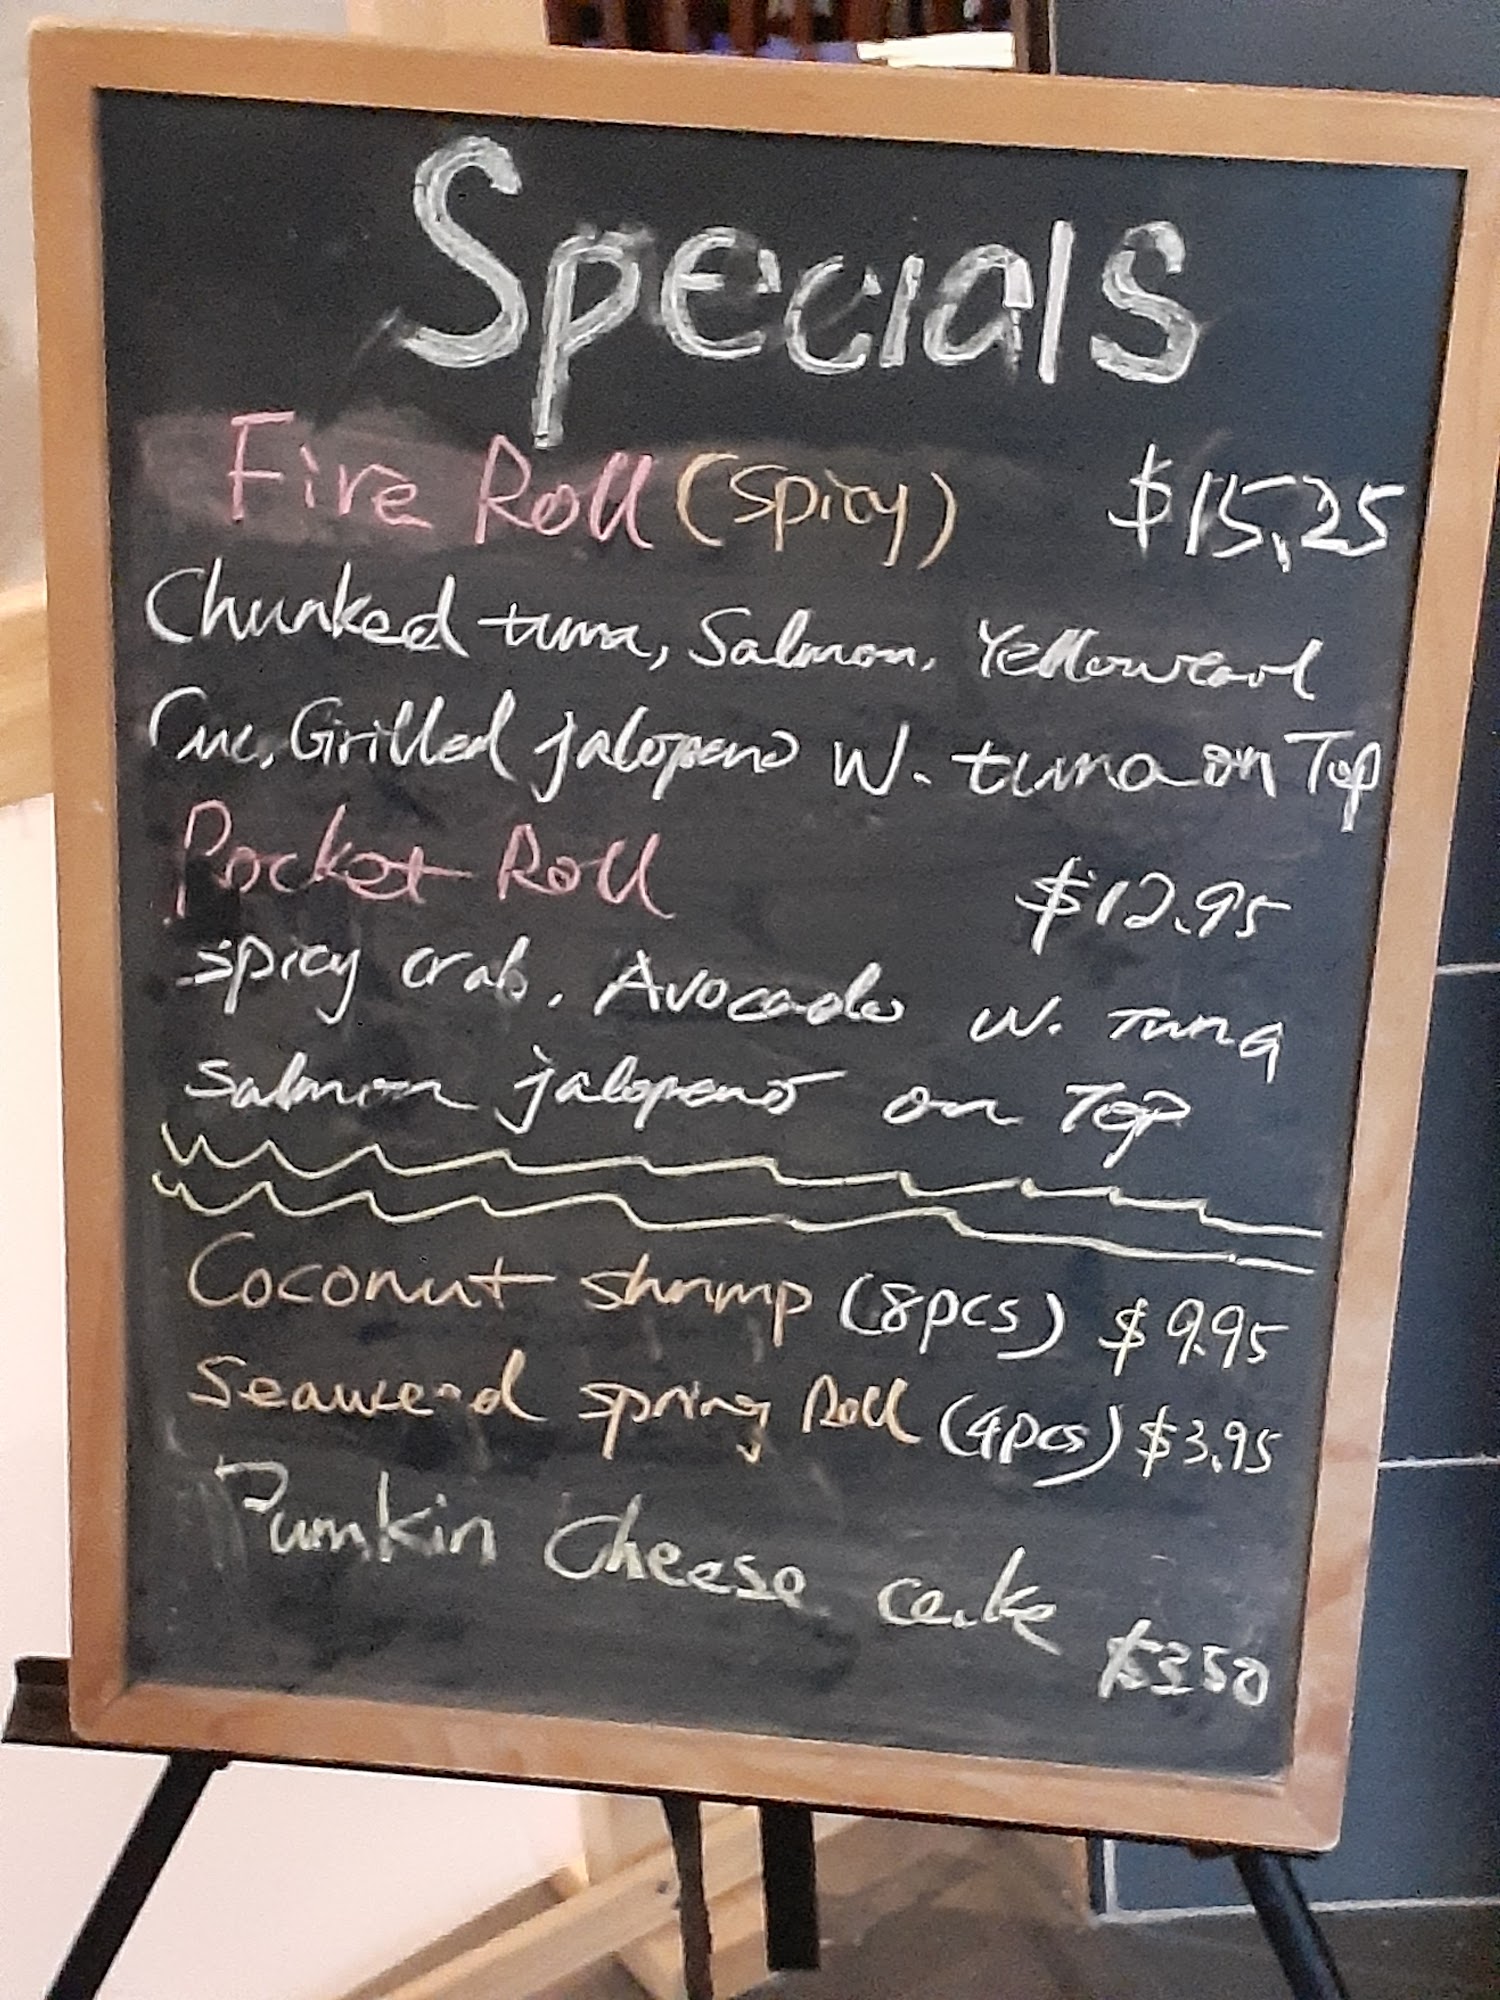 Specials
Fire Roll (spicy) $15.25
Chunked tuna, Salmon, Yellowtail
Cuc, Grilled jalopeno W. tuna on Top
Pocket Roll $12.95
spicy crab, Avocado W. Tuna
salmon jalopeno on Top
Coconut shrimp (8pcs) $9.95
Seaweed spring Roll (4pcs) $3.95
Pumkin Cheese cake
$3.50